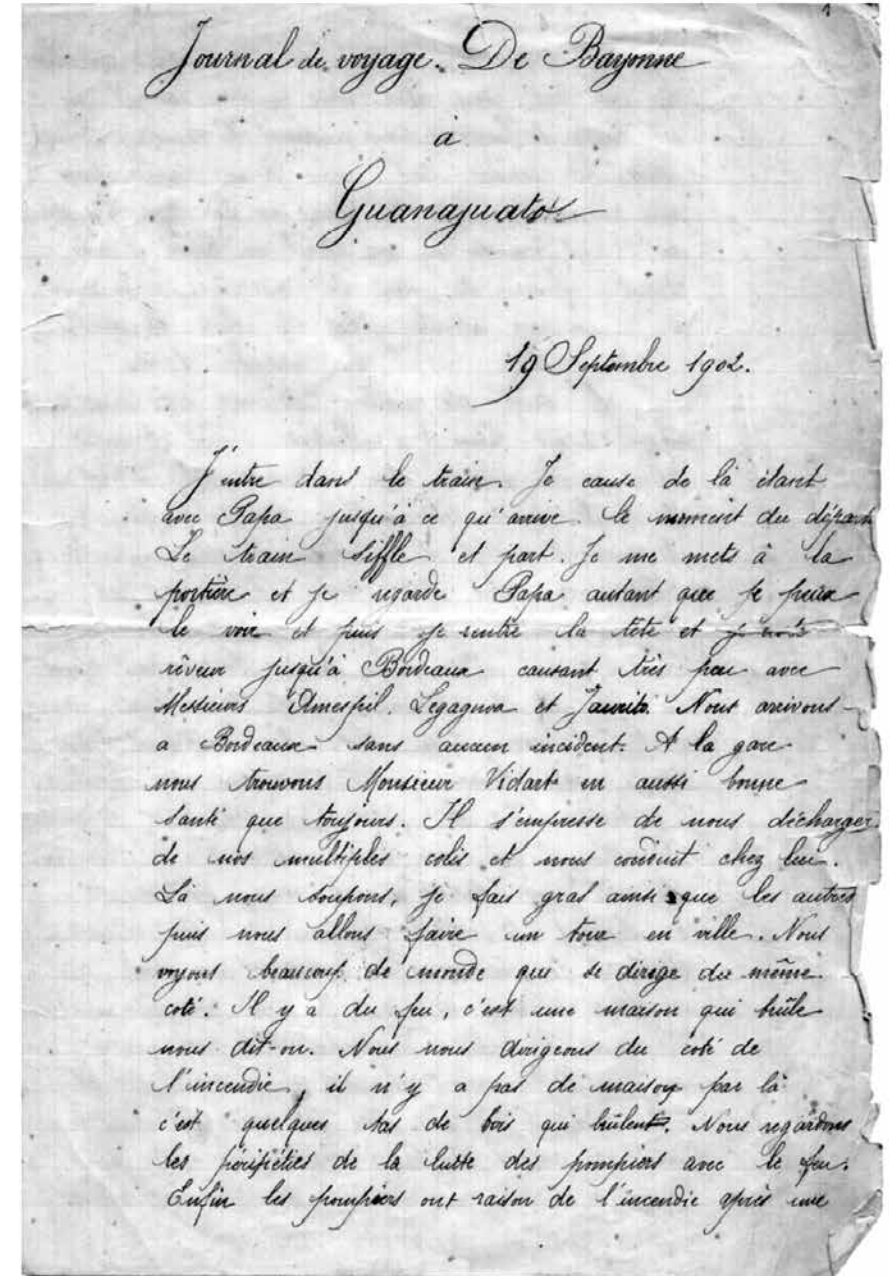 1
Journal de voyage. De Bayonne
à
Guanajuato
19 Septembre 1902.
J'entre dans le train. Je cause de là étant
avec Papa jusqu'à ce qu'arrive le moment du départ
Le train siffle et part. Je me mets à la
portière et je regarde Papa autant que je peux
le voir et puis je rentre la tête et je
rêveur jusqu'à Bordeaux causant très peu avec
Messieurs Amespil. Legagnoa et Jaurits. Nous arrivons
a Bordeaux sans aucun incident. A la gare
nous trouvons Monsieur Vidart en aussi bonne
santé que toujours. Il s'empresse de nous décharger
de nos multiples colis et nous conduit chez lui.
Là nous soupons, je fais gras ainsi que les autres
puis nous allons faire un tour en ville. Nous
voyons beaucoup de monde qui se dirige du même
coté. Il y a du feu, c'est une maison qui brûle
nous dit-on. Nous nous dirigeons du coté de
l'incendie, il n'y a pas de maison par là
c'est quelques tas de bois qui brûlent. Nous regardons
les péripéties de la lutte des pompiers avec le feu.
Enfin les pompiers ont raison de l'incendie après une